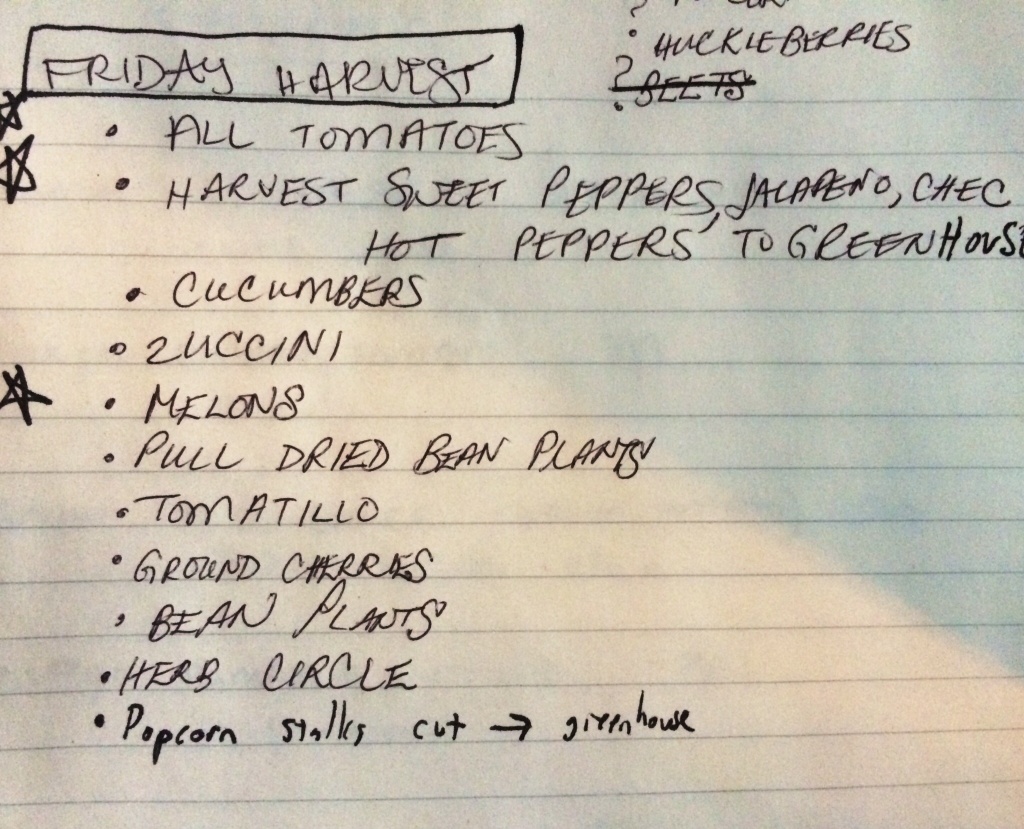 FRIDAY HARVEST
• ALL TOMATOES
• HARVEST SWEET PEPPERS, JALAPENO, CHEC
HOT PEPPERS TO GREENHOUSE
• CUCUMBERS
• ZUCCINI
• MELONS
• PULL DRIED BEAN PLANTS
• TOMATILLO
• GROUND CHERRIES
• BEAN PLANTS
• HERB CIRCLE
• Popcorn stalks cut → greenhouse
?
• HUCKLEBERRIES
? • BEETS